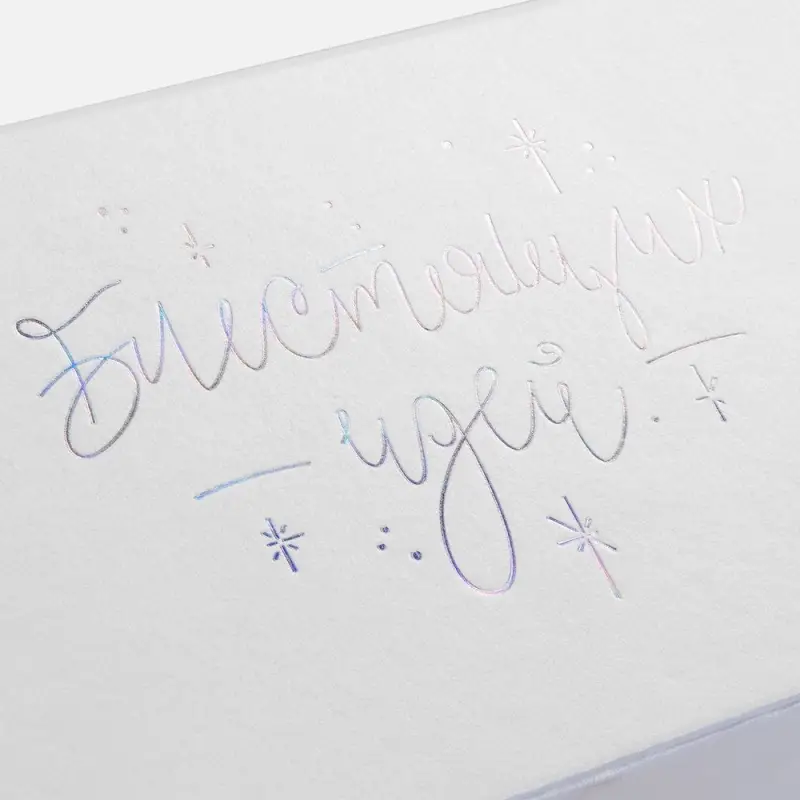 Блестящих
идей